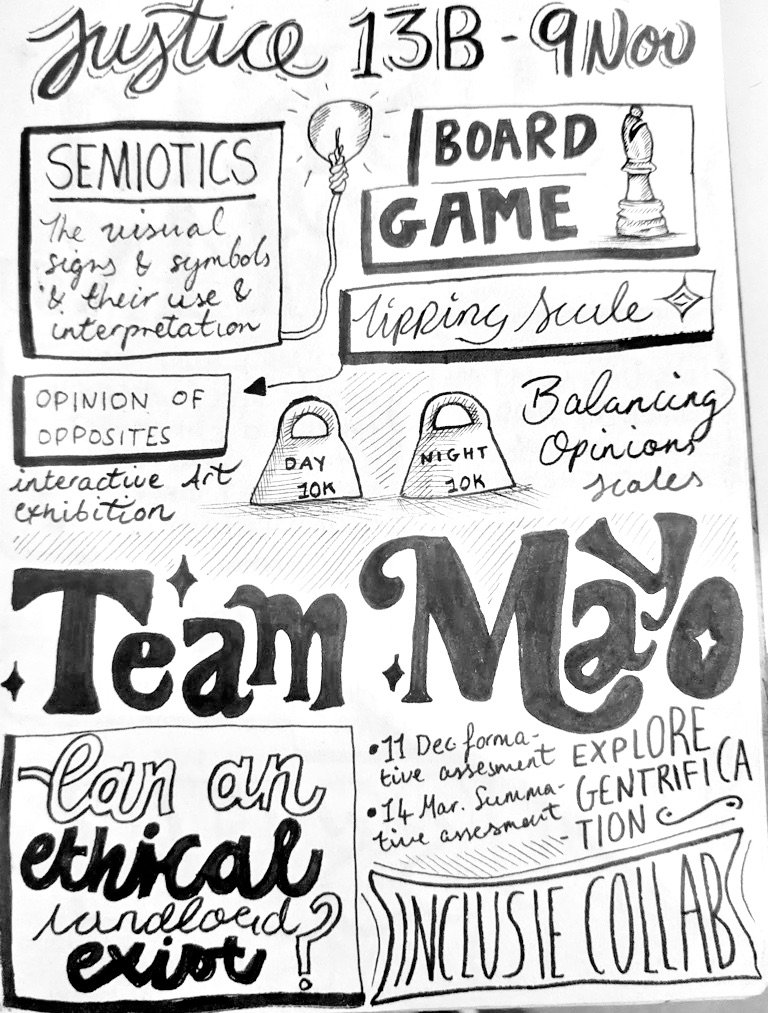 Justice 13B - 9 Nov
SEMIOTICS
The visual
signs & symbols
& their use &
interpretation
BOARD
GAME
Tipping Scale
OPINION OF
OPPOSITES
interactive Art
exhibition
DAY
10K
NIGHT
10K
Balancing
Opinions
scales
Team Mayo
Can an
ethical
landlord
exist?
• 11 Dec forma-
tive assesment
• 14 Mar. Summa-
tive assesment
EXPLORE
GENTRIFICA
-TION
INCLUSIE COLLAB